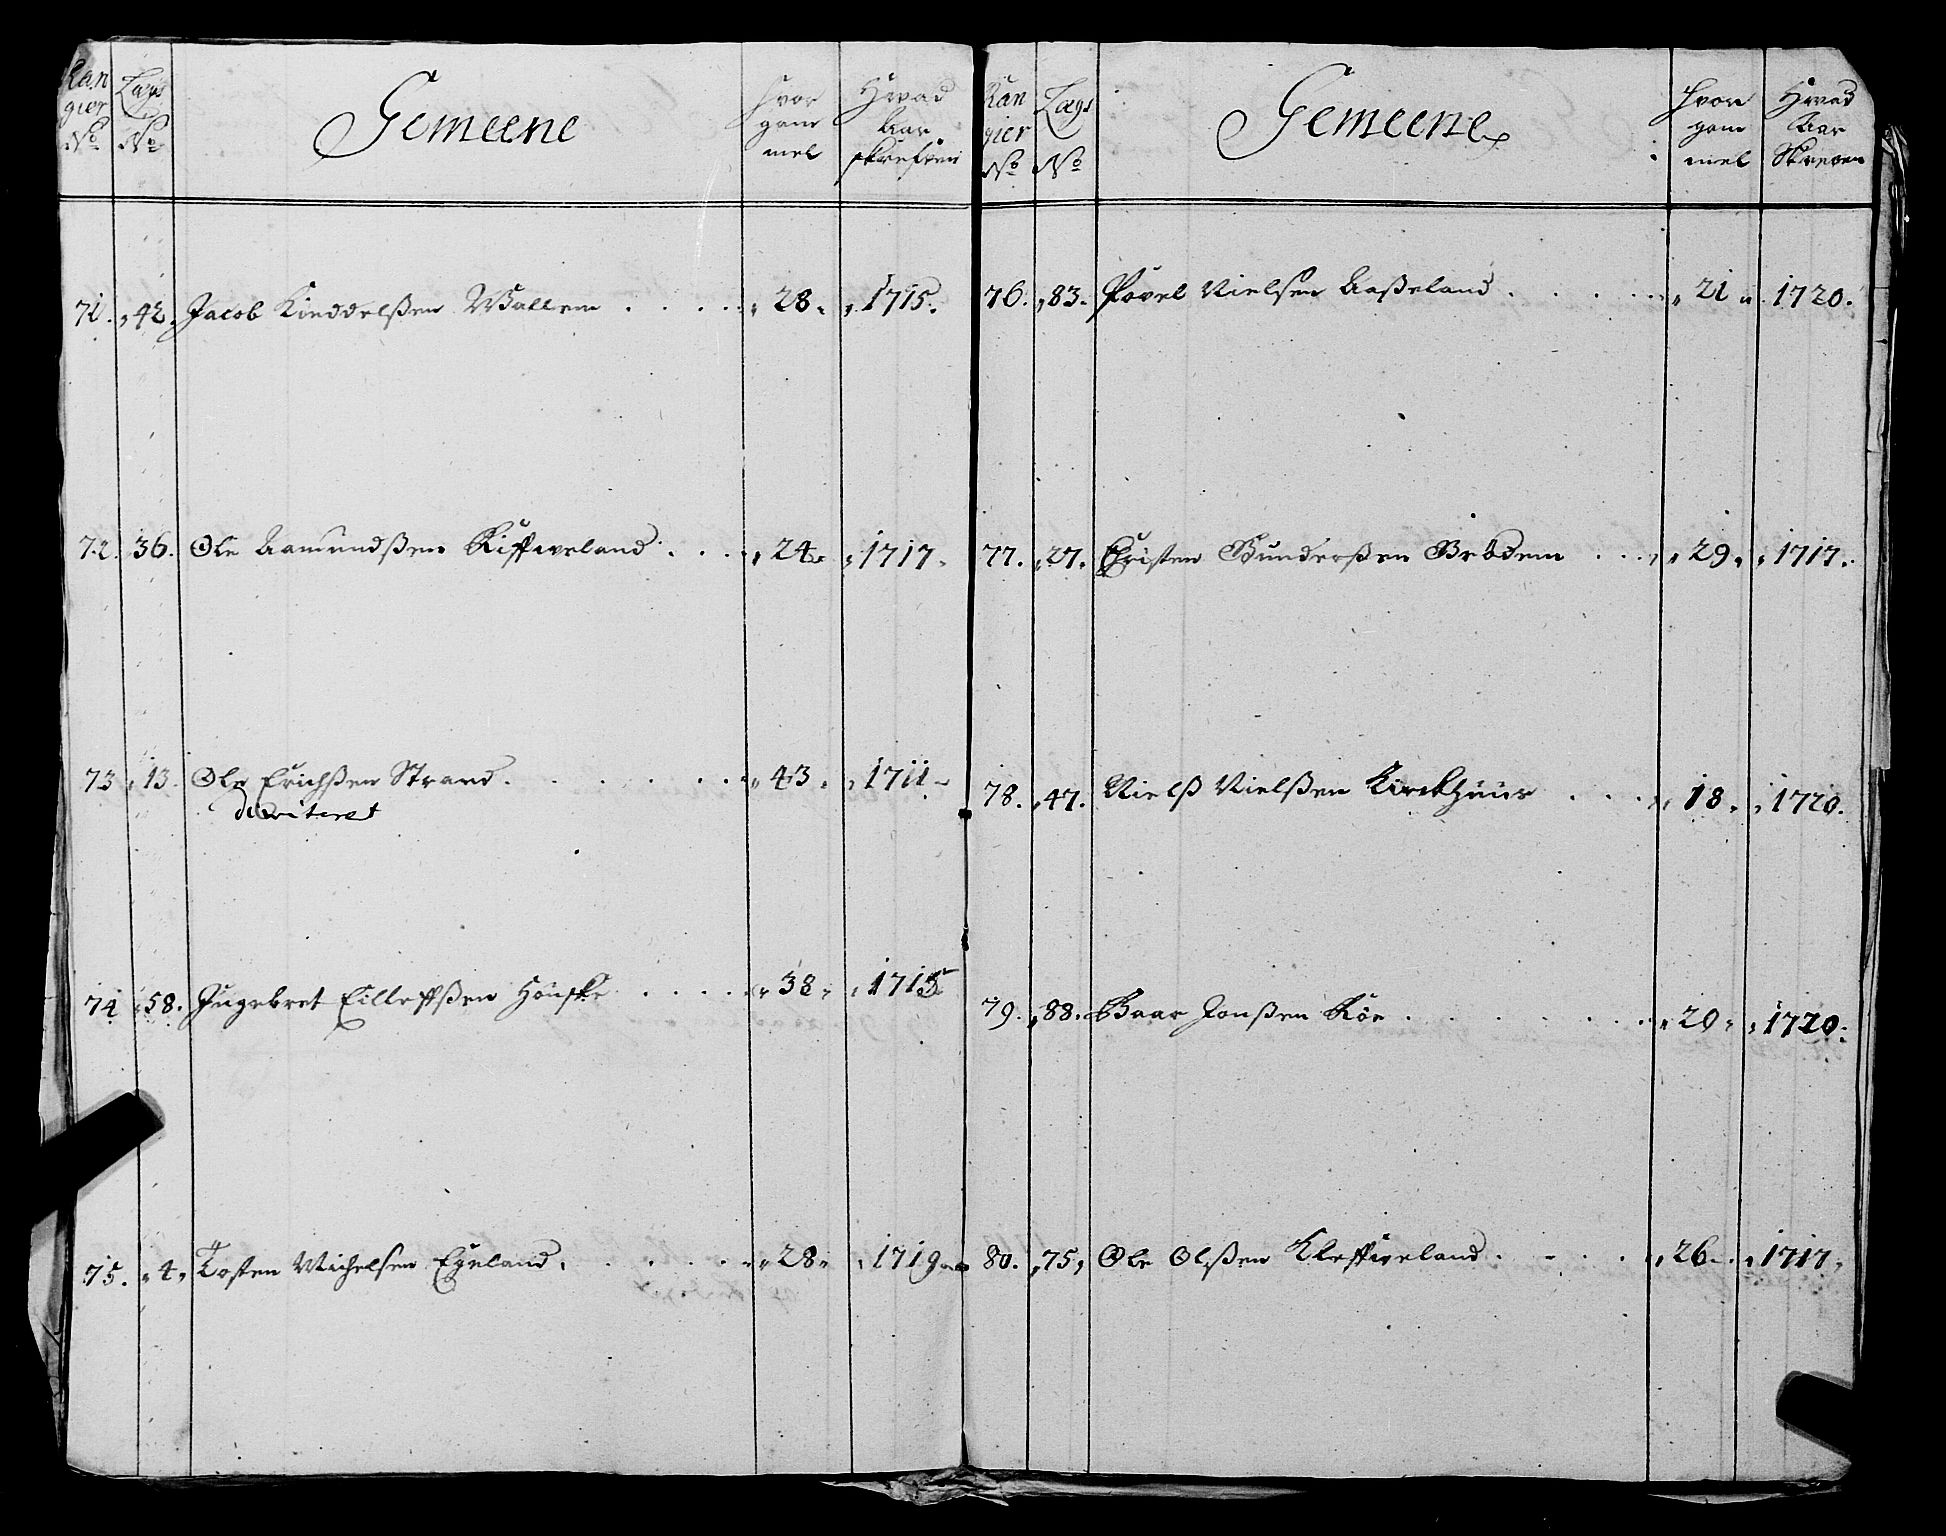 Ran
gier
No
Lægs
No
Gemeene
Hvor
gam
mel
Hvad
Aar
skrefven
71. 42. Jacob Kieddelßen Wallem 28. 1715.
72. 36. Ole Aamundßen Kiffweland 24. 1717.
73 13. Ole Erichßen Strand 43. 1711
74 58. Ingebret Eilleffßen Hönske 38. 1715
75. 4. Tosten Michelsen Egeland 28. 1719
Ran
gier
No
Lægs
No
Gemeene
Hvor
gam
mel
Hvad
Aar
Skreven
76. 83. Povel Nielsen Aaßeland 21 1720.
77. 27. Christen Gunderßen Brödem 29. 1717.
78. 47. Nielß Nielßen Kirckhuus 18. 1720.
79. 88. Baar Jonßen Röe 20. 1720.
80. 75. Ole Olßen Kleffweland 26. 1717.